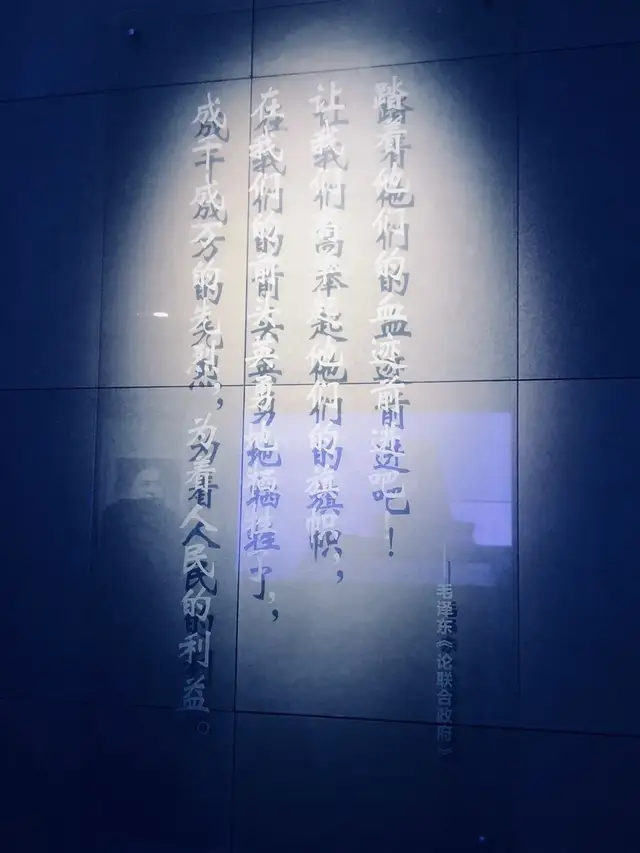 成千成万的先烈，为着人民的利益。
在我们的前头英勇地牺牲了，
让我们高举起他们的旗帜，
踏着他们的血迹前进吧！
——毛泽东《论联合政府》